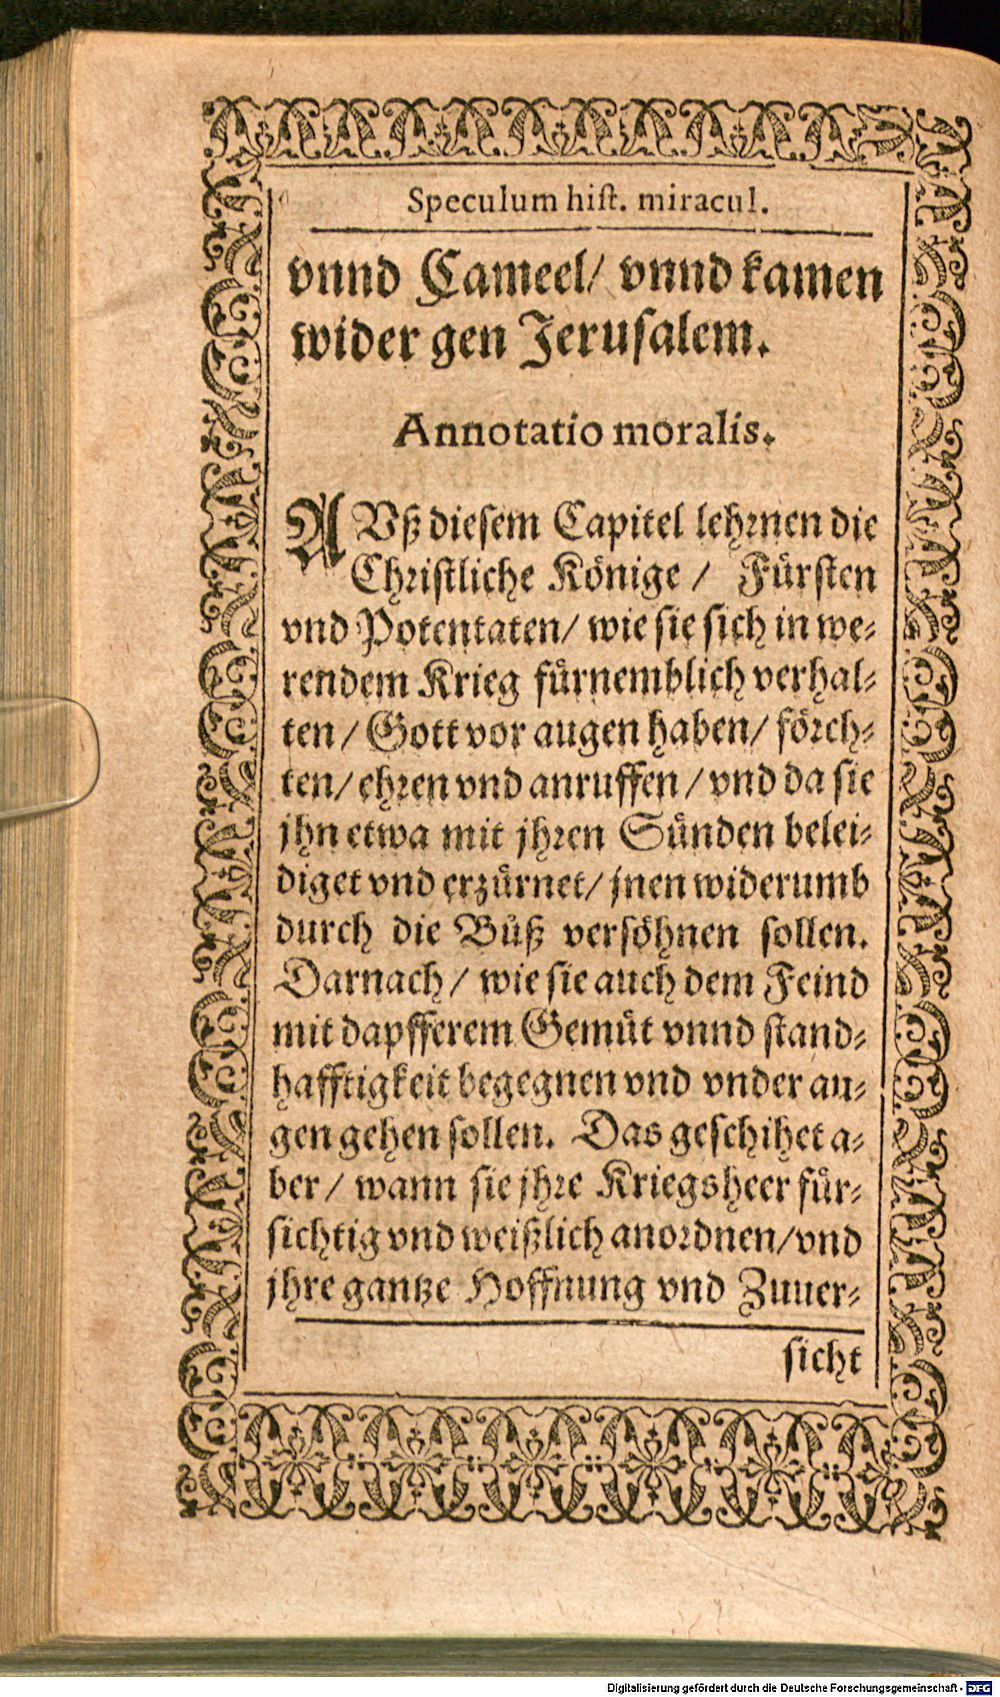 Speculum hist. miracul.
vnnd Cameel/ vnnd kamen
wider gen Jerusalem.
Annotatio moralis.
AVß diesem Capitel lehrnen die
Christliche Könige / Fürsten
vnd Potentaten/ wie sie sich in we-
rendem Krieg fürnemblich verhal-
ten / Gott vor augen haben/ förch-
ten/ ehren vnd anruffen / vnd da sie
jhn etwa mit jhren Sünden belei-
diget vnd erzürnet/ jnen widerumb
durch die Büß versöhnen sollen.
Darnach / wie sie auch dem Feind
mit dapfferem Gemüt vnnd stand-
hafftigkeit begegnen vnd vnder au-
gen gehen sollen. Das geschihet a-
ber / wann sie jhre Kriegsheer für-
sichtig vnd weißlich anordnen/ vnd
jhre gantze Hoffnung vnd Zuuer-
sicht
Digitalisierung gefördert durch die Deutsche Forschungsgemeinschaft - DFG